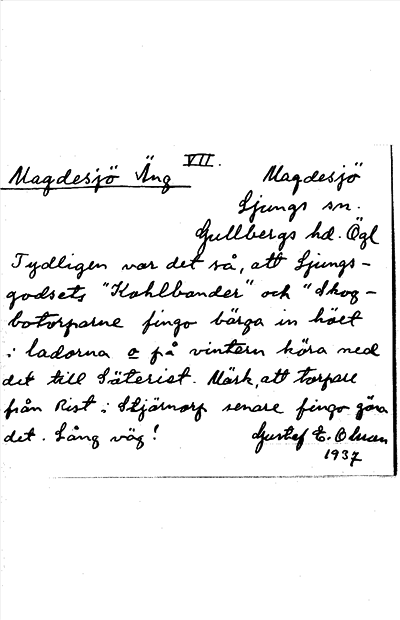 VII.
Magdesjö Äng Magdesjö
Ljungs sn.
Gullbergs hd. Ögl
Tydligen var det så, att Ljungs-
godsets "Kohlbönder" och "Skog-
botorparne fingo bärga in höet
i ladorna o på vintern köra ned
det till Säteriet. Märk, att torpare
från Rist i Stjärnorp senare fingo göra
det. Lång väg! Gustef E. Olsson
1937